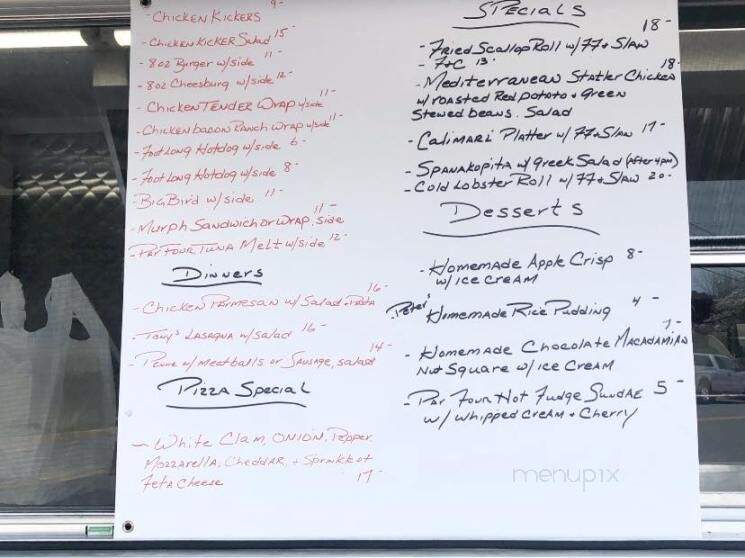 - Chicken Kickers 9-
- Chicken Kicker Salad 15-
- 8oz Burger w/side 11-
- 8oz Cheesburg w/side 12-
- Chicken Tender Wrap w/side 11-
- Chicken bacon Ranch wrap w/side 11-
- Foot Long Hotdog w/side 6-
- Foot Long Hotdog w/side 8-
- Big Bird w/side 11-
- Murph Sandwich or Wrap, side 11-
- Par Four Tuna Melt w/side 12-
Dinners
- Chicken Parmesan w/ Salad + Pasta 16-
- Tony's Lasagna w/salad 16-
- Penne w/ meatballs or Sausage, salad 14-
Pizza Special
- White Clam, Onion, Pepper
Mozzarella, Cheddar, + Sprinkle of
Feta Cheese 17-
Specials
- Fried Scallop Roll w/ FF + Slaw 18-
- F+C 13-
- Mediterranean Statler Chicken 18-
w/ roasted Red potato + green
Stewed beans. Salad
- Calimari Platter w/ FF + Slaw 17-
- Spanakopita w/ Greek Salad (After 4pm)
- Cold Lobster Roll w/ FF + Slaw 20-
Desserts
- Homemade Apple Crisp 8-
w/ ice cream
Peters' Homemade Rice Pudding 4-
- Homemade Chocolate Macadamian 7-
Nut Square w/ ice cream
- Par Four Hot Fudge Sundae 5-
w/ whipped cream + Cherry
menupix